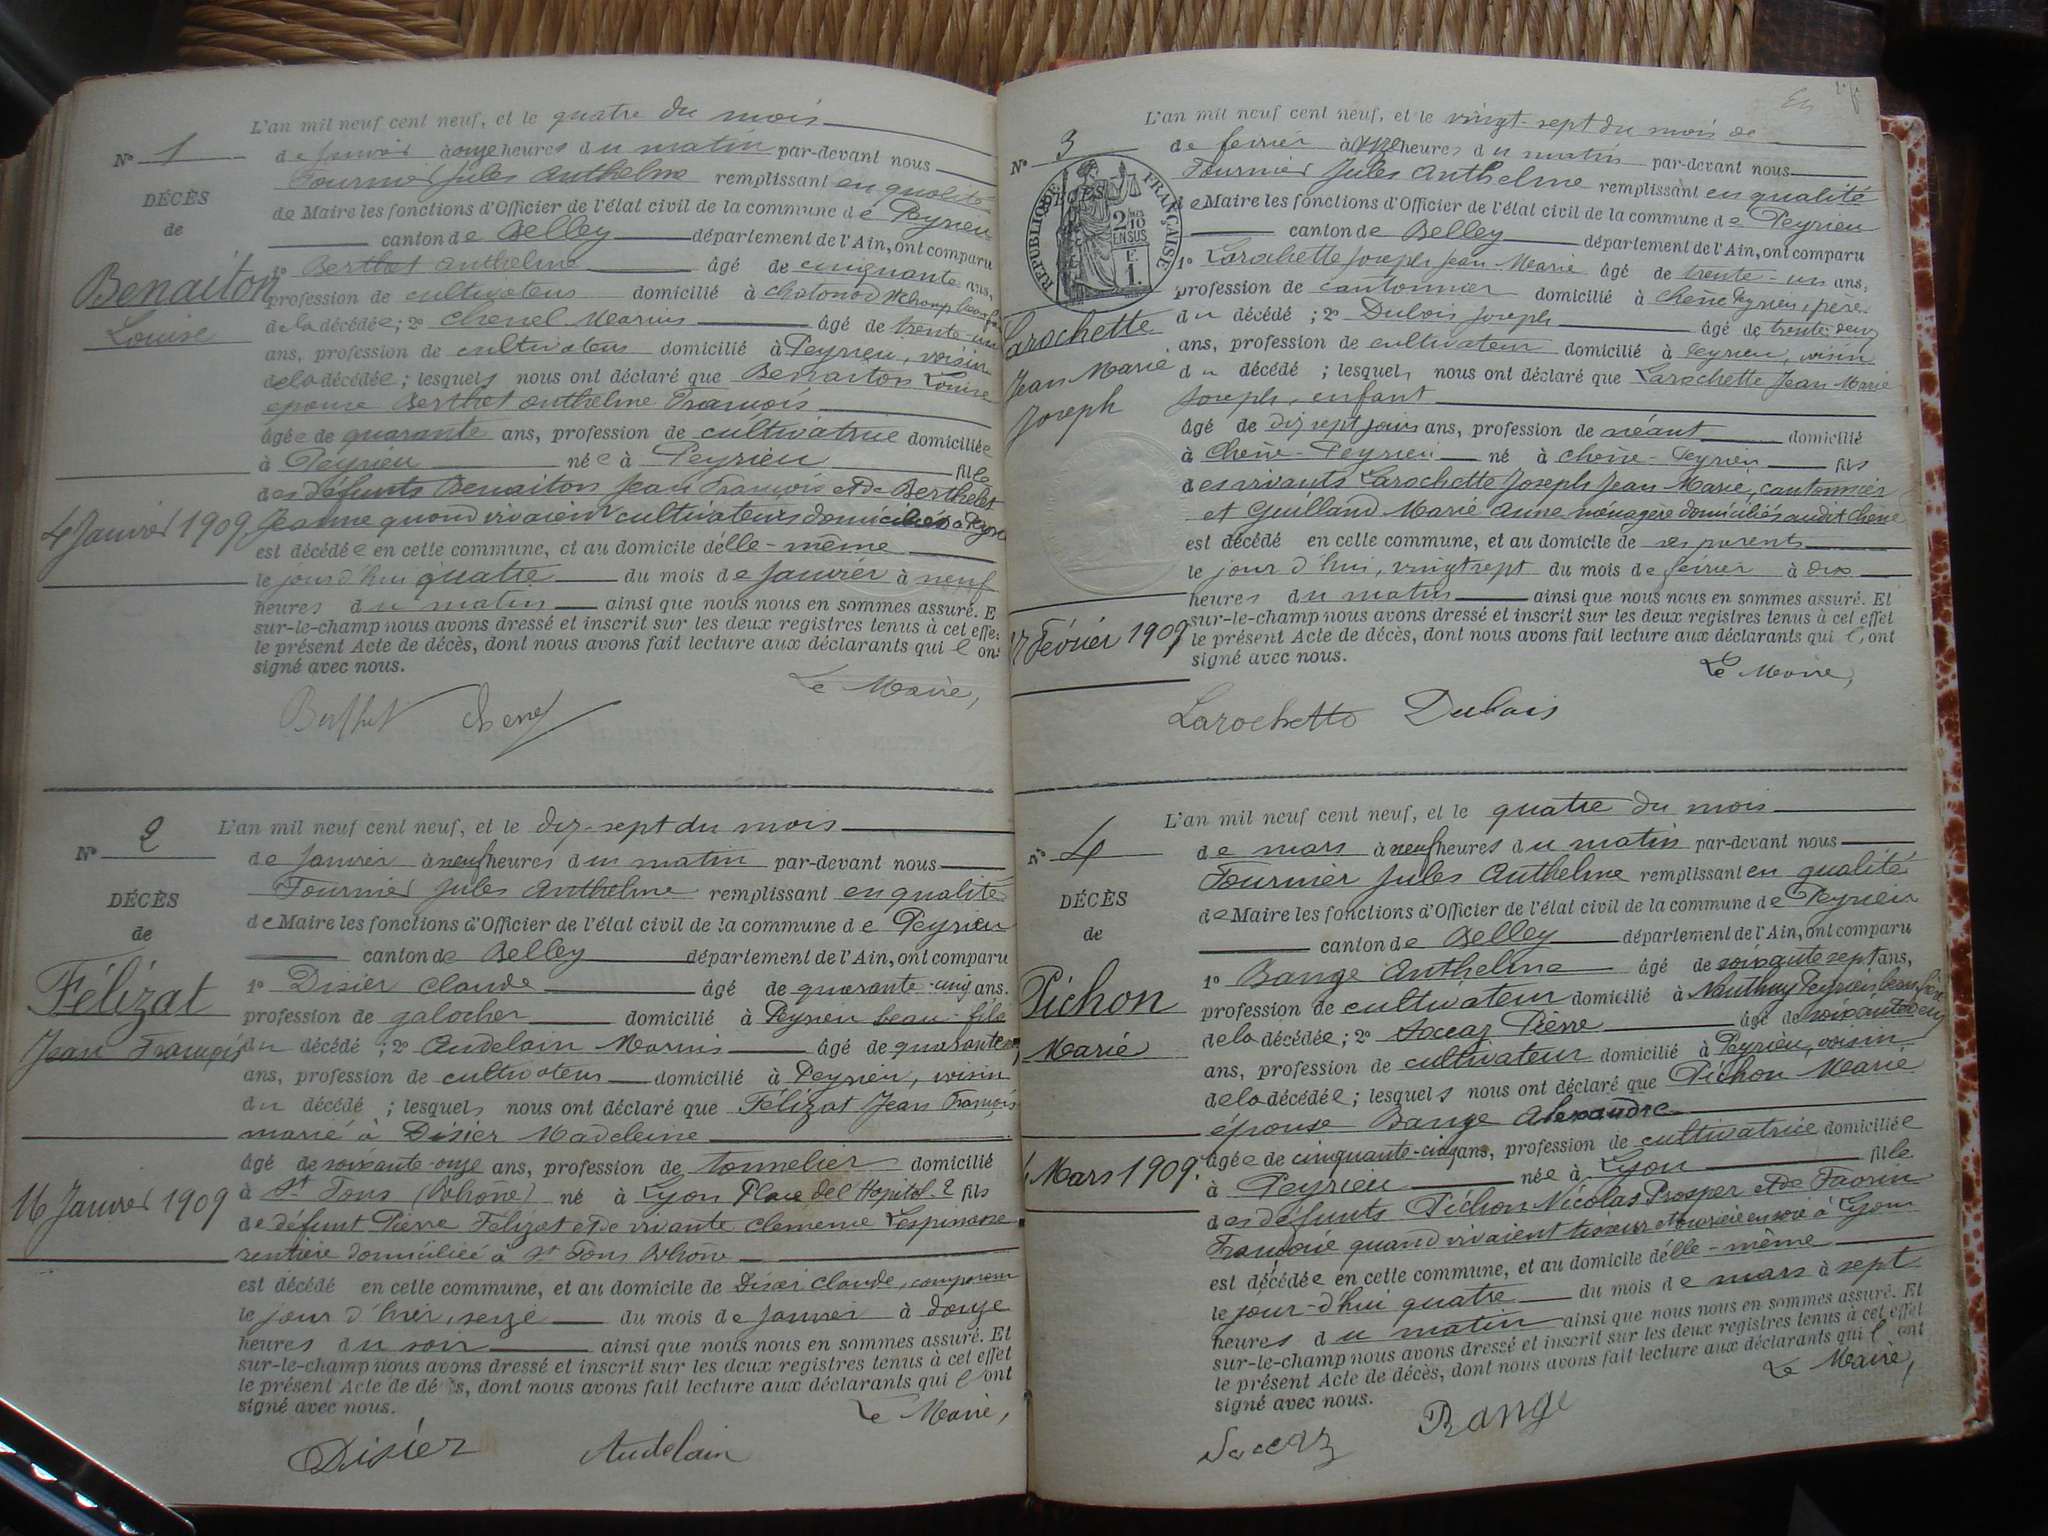 L'an mil neuf cent neuf, et le quatre du mois
N° 1
de janvier à onze heures du matin par-devant nous
Fournier Jules Anthelme remplissant en qualité
DÉCÈS
de Maire les fonctions d'Officier de l'état civil de la commune de Peyrieu
de
canton de Belley département de l'Ain, ont comparu
1° Berthet Anthelme âgé de cinquante ans,
Benaiton
profession de cultivateur domicilié à
Louise
de la décédée ; 2° Chenel Marius âgé de trente-un
ans, profession de cultivateur domicilié à Peyrieu, voisin
de la décédée ; lesquels nous ont déclaré que Benaiton Louise
épouse Berthet Anthelme François
âgée de quarante ans, profession de cultivatrice domiciliée
à Peyrieu née à Peyrieu fille
des défunts Benaiton Jean François et de Berthelet
4 Janvier 1909.
Jeanne quand vivaient cultivateurs domiciliés à Peyrieu
est décédée en cette commune, et au domicile d'elle-même
le jourd'hui quatre du mois de janvier à neuf
heures du matin ainsi que nous nous en sommes assuré. E
sur-le-champ nous avons dressé et inscrit sur les deux registres tenus à cet effe
le présent Acte de décès, dont nous avons fait lecture aux déclarants qui l'on
signé avec nous.
Le Maire,
Berthet Chenel
L'an mil neuf cent neuf, et le dix-sept du mois
N° 2
de janvier à neuf heures du matin par-devant nous
Fournier Jules Anthelme remplissant en qualité
DÉCÈS
de Maire les fonctions d'Officier de l'état civil de la commune de Peyrieu
de
canton de Belley département de l'Ain, ont comparu
1° Disier Claude âgé de quarante-cinq ans.
Félizat
profession de galocher domicilié à Peyrieu beau-fils
Jean François
du décédé ; 2° Audelain Marius âgé de quarante
ans, profession de cultivateur domicilié à Peyrieu, voisin
du décédé ; lesquels nous ont déclaré que Félizat Jean François
marié à Disier Madeleine
âgé de soixante-onze ans, profession de tonnelier domicilié
16 Janvier 1909
à St Fons (Rhône) né à Lyon Place de l'Hopital. 2 fils
de défunt Pierre Félizat et de vivante Clémence Lespinasse
rentière domiciliée à St Fons Rhône
est décédé en cette commune, et au domicile de Disier Claude,
le jour d'hier, seize du mois de janvier à douze
heures du soir ainsi que nous nous en sommes assuré. Et
sur-le-champ nous avons dressé et inscrit sur les deux registres tenus à cet effet
le présent Acte de décès, dont nous avons fait lecture aux déclarants qui l'ont
signé avec nous.
Le Maire,
Disier Audelain
L'an mil neuf cent neuf, et le vingt-sept du mois de
N° 3
de février à onze heures du matin par-devant nous
Fournier Jules Anthelme remplissant en qualité
RÉPUBLIQUE FRANÇAISE
2/10 EN SUS
de Maire les fonctions d'Officier de l'état civil de la commune de Peyrieu
canton de Belley département de l'Ain, ont comparu
1° Larochette Joseph Jean-Marie âgé de trente-un ans,
profession de cantonnier domicilié à Chêne Peyrieu, père
Larochette
du décédé ; 2° Dubois Joseph âgé de trente-deux
ans, profession de cultivateur domicilié à Peyrieu, voisin
Jean Marie
du décédé ; lesquels nous ont déclaré que Larochette Jean-Marie
Joseph
Joseph, enfant
âgé de dix sept jours ans, profession de néant domicilié
à Chêne-Peyrieu né à Chêne-Peyrieu fils
des vivants Larochette Joseph Jean-Marie, cantonnier
et Guilland Marie Anne ménagère domiciliés audit Chêne
est décédé en cette commune, et au domicile de ses parents
le jour d'hui, vingt sept du mois de février à dix
heures du matin ainsi que nous nous en sommes assuré. Et
sur-le-champ nous avons dressé et inscrit sur les deux registres tenus à cet effet
7 Février 1909
le présent Acte de décès, dont nous avons fait lecture aux déclarants qui l'ont
signé avec nous.
Le Maire,
Larochette Dubois
L'an mil neuf cent neuf, et le quatre du mois
N° 4
de mars à neuf heures du matin par-devant nous
Fournier Jules Anthelme remplissant en qualité
DÉCÈS
de Maire les fonctions d'Officier de l'état civil de la commune de Peyrieu
de
canton de Belley département de l'Ain, ont comparu
1° Bange Anthelme âgé de soixante sept ans,
Pichon
profession de cultivateur domicilié à Nanthuy Peyrieu beau frère
Marie
de la décédée ; 2° Soccaz Pierre âgé de soixante deux
ans, profession de cultivateur domicilié à Peyrieu, voisin
de la décédée ; lesquels nous ont déclaré que Pichon Marie
épouse Bange Alexandre
4 Mars 1909.
âgée de cinquante-cinq ans, profession de cultivatrice domiciliée
à Peyrieu née à Lyon fille
des défunts Pichon Nicolas Prosper et de Favrin
Françoise quand vivaient tisseur et ouvrière en soie à Lyon
est décédée en cette commune, et au domicile d'elle-même
le jour-d'hui quatre du mois de mars à sept
heures du matin ainsi que nous nous en sommes assuré. Et
sur-le-champ nous avons dressé et inscrit sur les deux registres tenus à cet effet
le présent Acte de décès, dont nous avons fait lecture aux déclarants qui l'ont
signé avec nous.
Le Maire,
Soccaz Bange